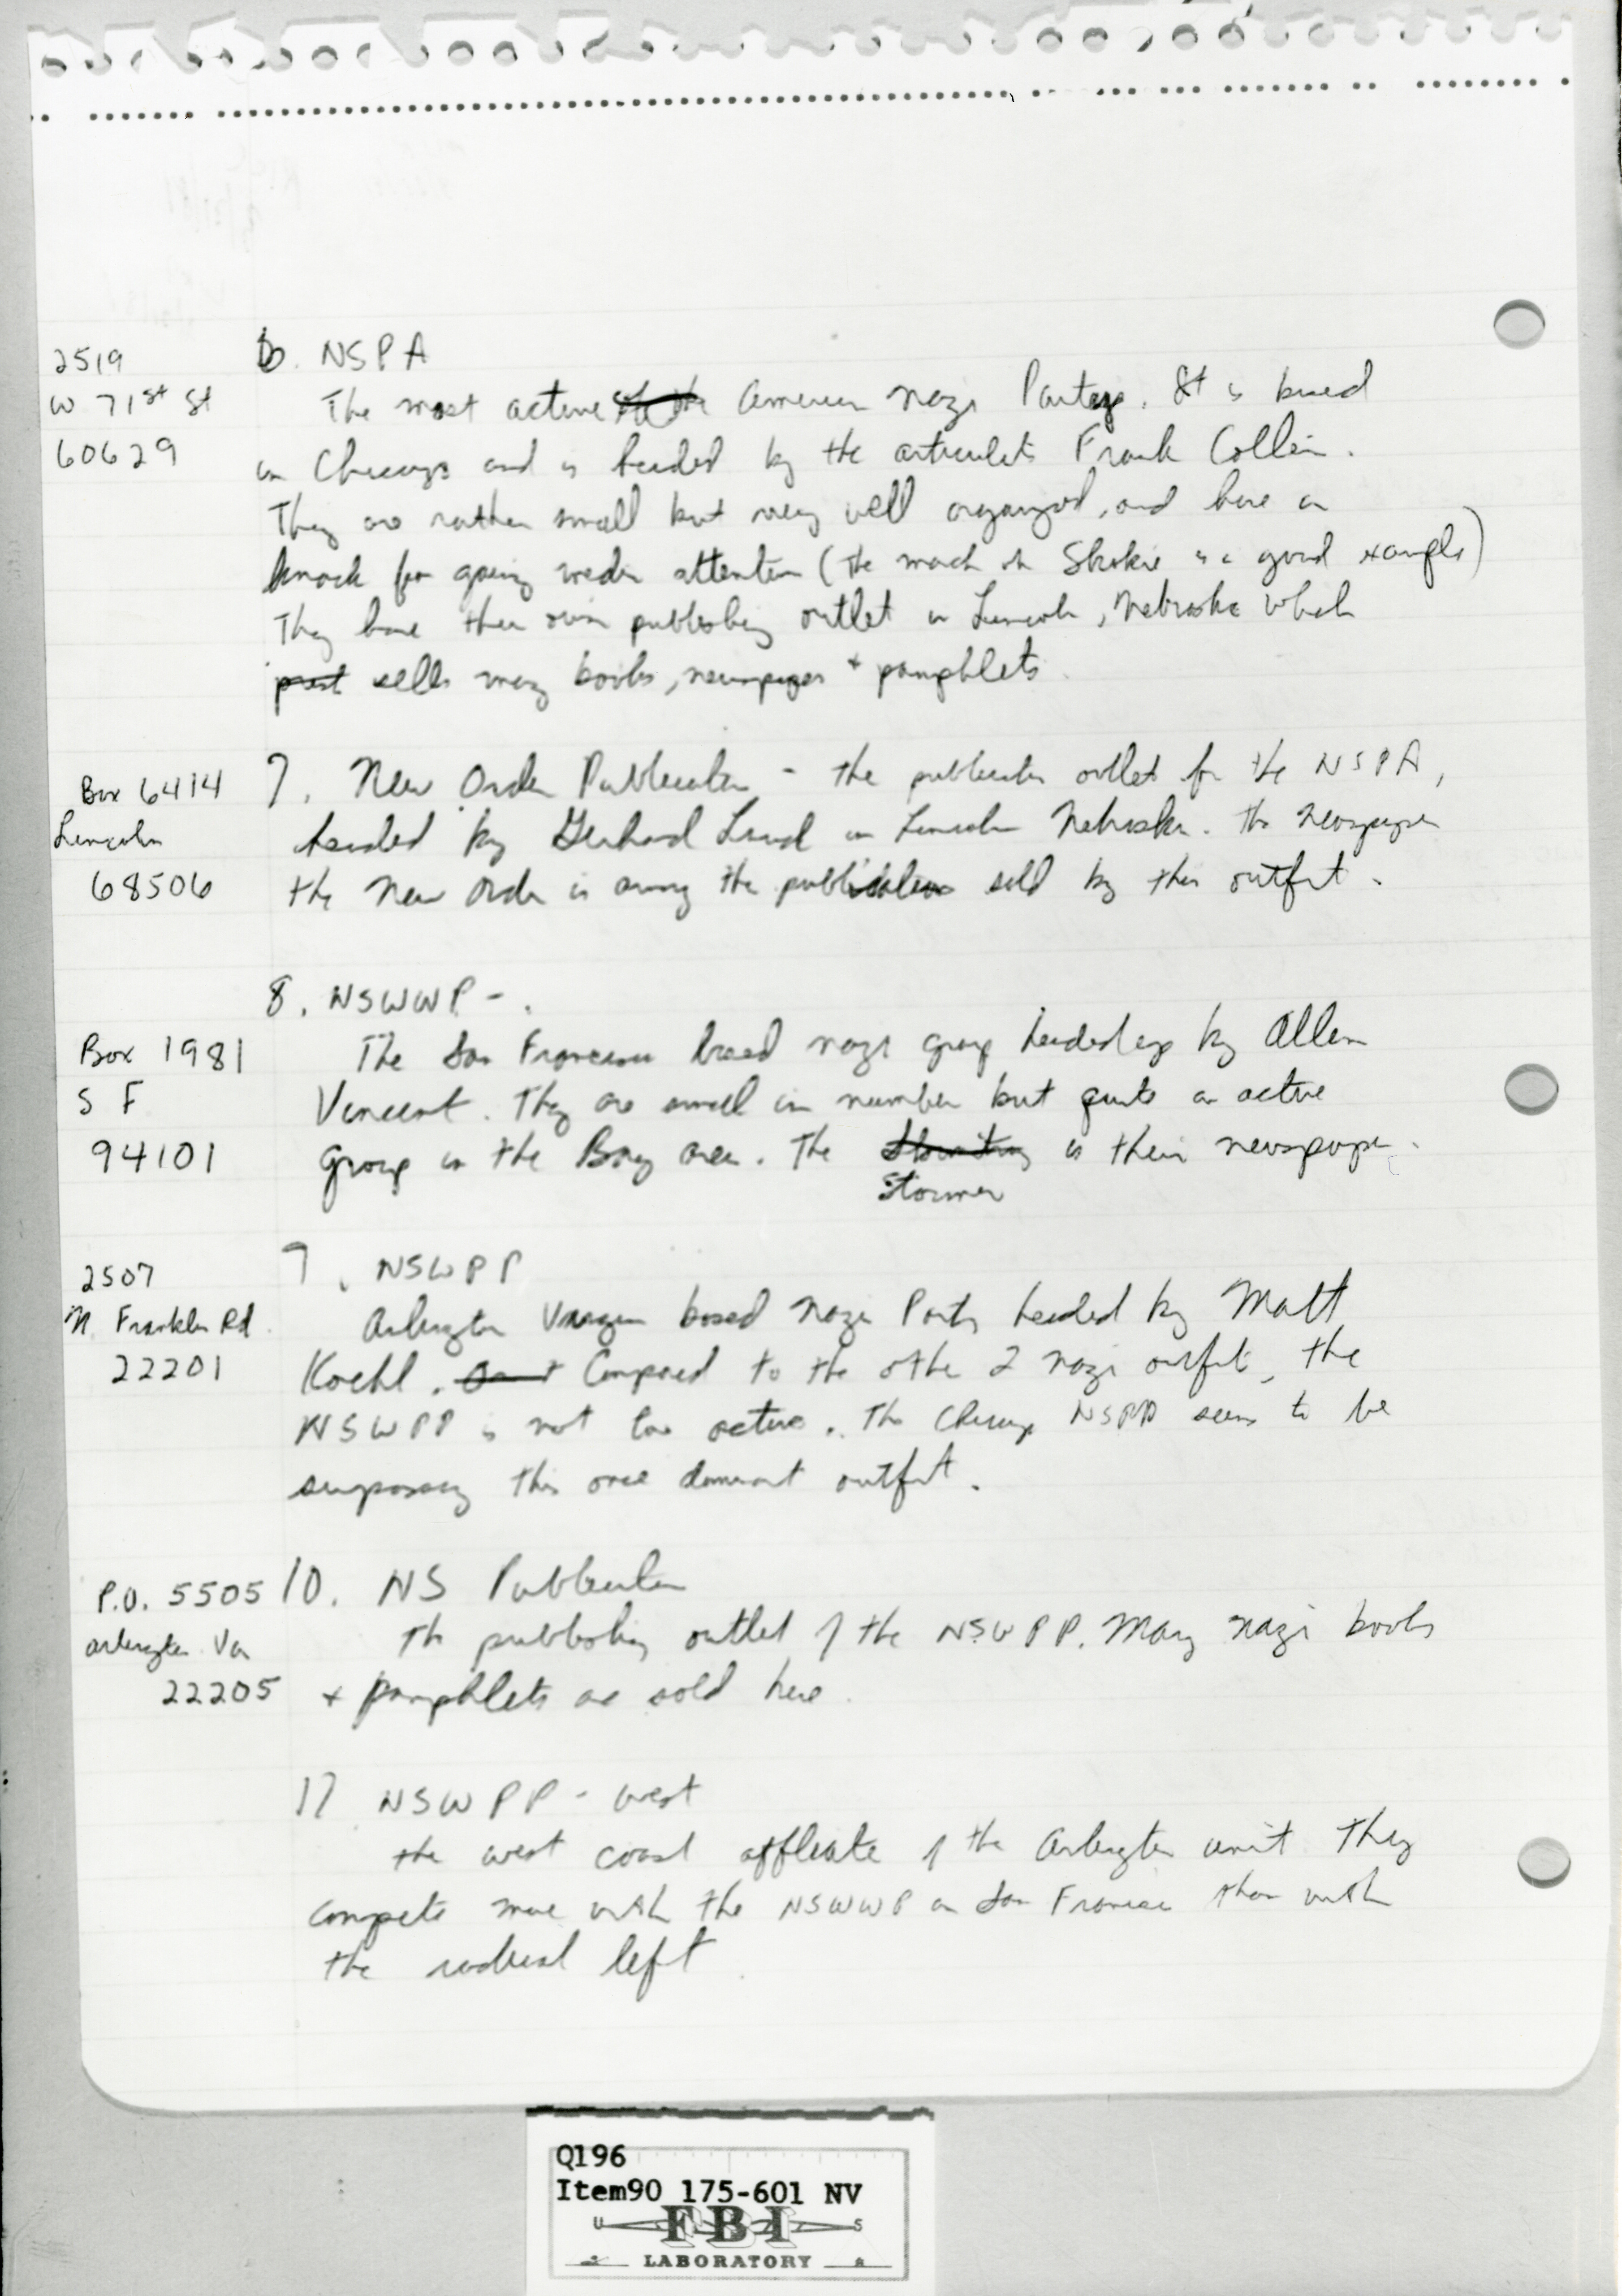 2519
W 71st St
60629
6. NSPA
The most active of the American Nazi Party. It is based
in Chicago and is headed by the articulate Frank Collin.
They are rather small but very well organized, and have a
knack for going media attention (the march in Skokie is a good example)
They have their own publishing outlet in Lincoln, Nebraska which
print sells many books, newspapers + pamphlets.
Box 6414
Lincoln
68506
7. New Order Publication - the publication outlet for the NSPA,
headed by Gerhard Lauck in Lincoln Nebraska. The newspaper
the New Order is among the publications sold by this outfit.
8. NSWWP - .
Box 1981
S F
94101
The San Francisco based nazi group headed up by Allen
Vincent. They are small in number but quite an active
group in the Bay area. The is their newspaper.
Stormer
2507
N. Franklin Rd
22201
9. NSWPP
Arlington Virginia based Nazi Party headed by Matt
Koehl. Compared to the other 2 nazi outfits, the
NSWPP is not too active. The Chicago NSPA seems to be
surpassing this once dominant outfit.
P.O. 5505
Arlington Va
22205
10. NS Publication
The publishing outlet of the NSWPP. Many nazi books
+ pamphlets are sold here.
11 NSWPP - West
the west coast affliate of the Arlington unit. They
compete more with the NSWWP in San Francisco than with
the radical left.
Q196
Item90 175-601 NV
U S
FBI
LABORATORY